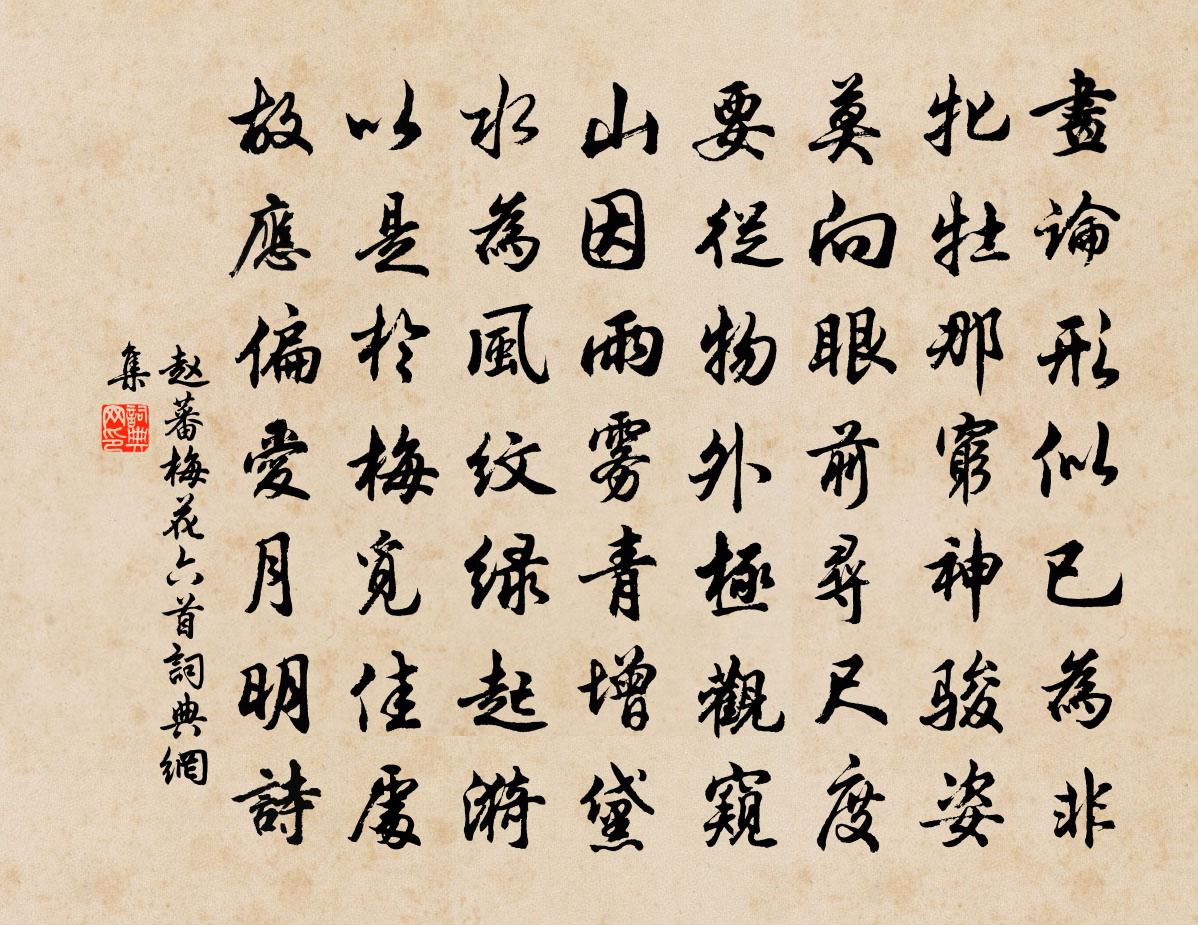 畫論形似已為非
牝牡那窮神骏姿
莫向眼前尋尺度
要從物外極觀窺
山因雨雾青增黛
水為風紋绿起漪
以是於梅覓佳處
故應偏愛月明詩
赵蕃梅花六首詞典網
集
詞典
网印